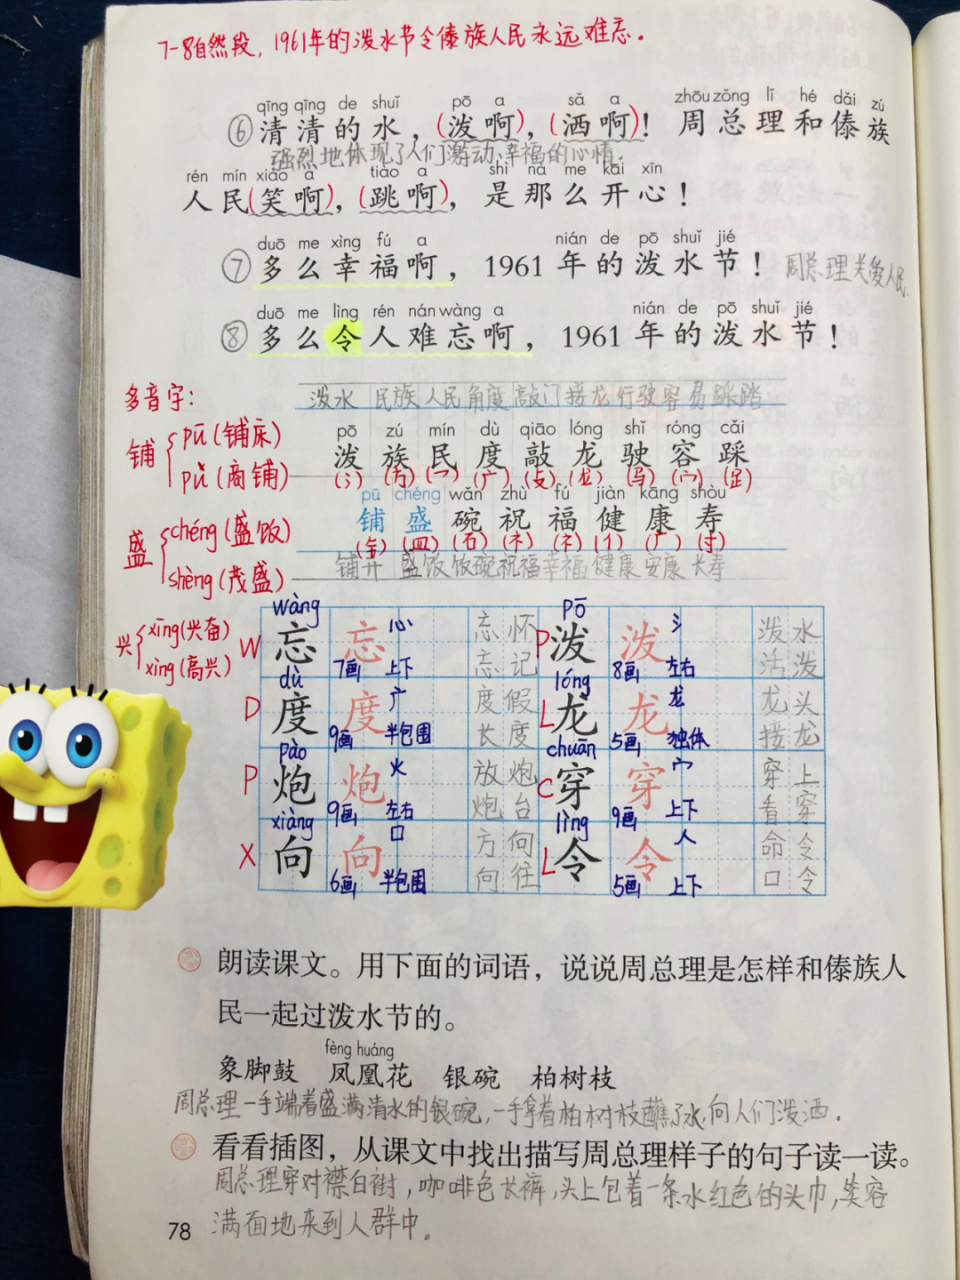 7-8自然段，1961年的泼水节令傣族人民永远难忘。
qīng qīng de shuǐ pō a sǎ a zhōu zǒng lǐ hé dǎi zú
⑥清清的水，(泼啊)，(洒啊)！周总理和傣族
强烈地体现了人们激动、幸福的心情。
rén mín xiào a tiào a shì nà me kāi xīn
人民(笑啊)，(跳啊)，是那么开心！
duō me xìng fú a nián de pō shuǐ jié
⑦多么幸福啊，1961年的泼水节！周总理关爱人民.
duō me lìng rén nán wàng a nián de pō shuǐ jié
⑧多么令人难忘啊，1961年的泼水节！
多音字：
铺 pū(铺床)
pù(商铺)
盛 chéng(盛饭)
shèng(茂盛)
兴 xīng(兴奋)
xìng(高兴)
泼水 民族 人民 角度 敲门 接龙 行驶 容易 踩踏
pō zú mín dù qiāo lóng shǐ róng cǎi
泼 族 民 度 敲 龙 驶 容 踩
(氵) (方) (乛) (广) (攴) (龙) (马) (宀) (𧾷)
pū chéng wǎn zhù fú jiàn kāng shòu
铺 盛 碗 祝 福 健 康 寿
(钅) (皿) (石) (礻) (礻) (亻) (广) (寸)
铺开 盛饭 饭碗 祝福 幸福 健康 安康 长寿
wàng pō
W 忘 忘 心 忘怀 P 泼 泼 氵 泼水
7画 上下 忘记 8画 左右 活泼
dù lóng
D 度 度 广 度假 L 龙 龙 龙 龙头
9画 半包围 长度 5画 独体 接龙
pào chuān
P 炮 炮 火 放炮 C 穿 穿 穴 穿上
9画 左右 炮台 9画 上下 看穿
xiàng lìng
X 向 向 口 方向 L 令 令 人 命令
6画 半包围 向往 5画 上下 口令
朗读课文。用下面的词语，说说周总理是怎样和傣族人
民一起过泼水节的。
fèng huáng
象脚鼓 凤凰花 银碗 柏树枝
周总理一手端着盛满清水的银碗，一手拿着柏树枝蘸了水，向人们泼洒.
看看插图，从课文中找出描写周总理样子的句子读一读。
周总理穿对襟白衬，咖啡色长裤，头上包着一条水红色的头巾，笑容
满面地来到人群中。
78